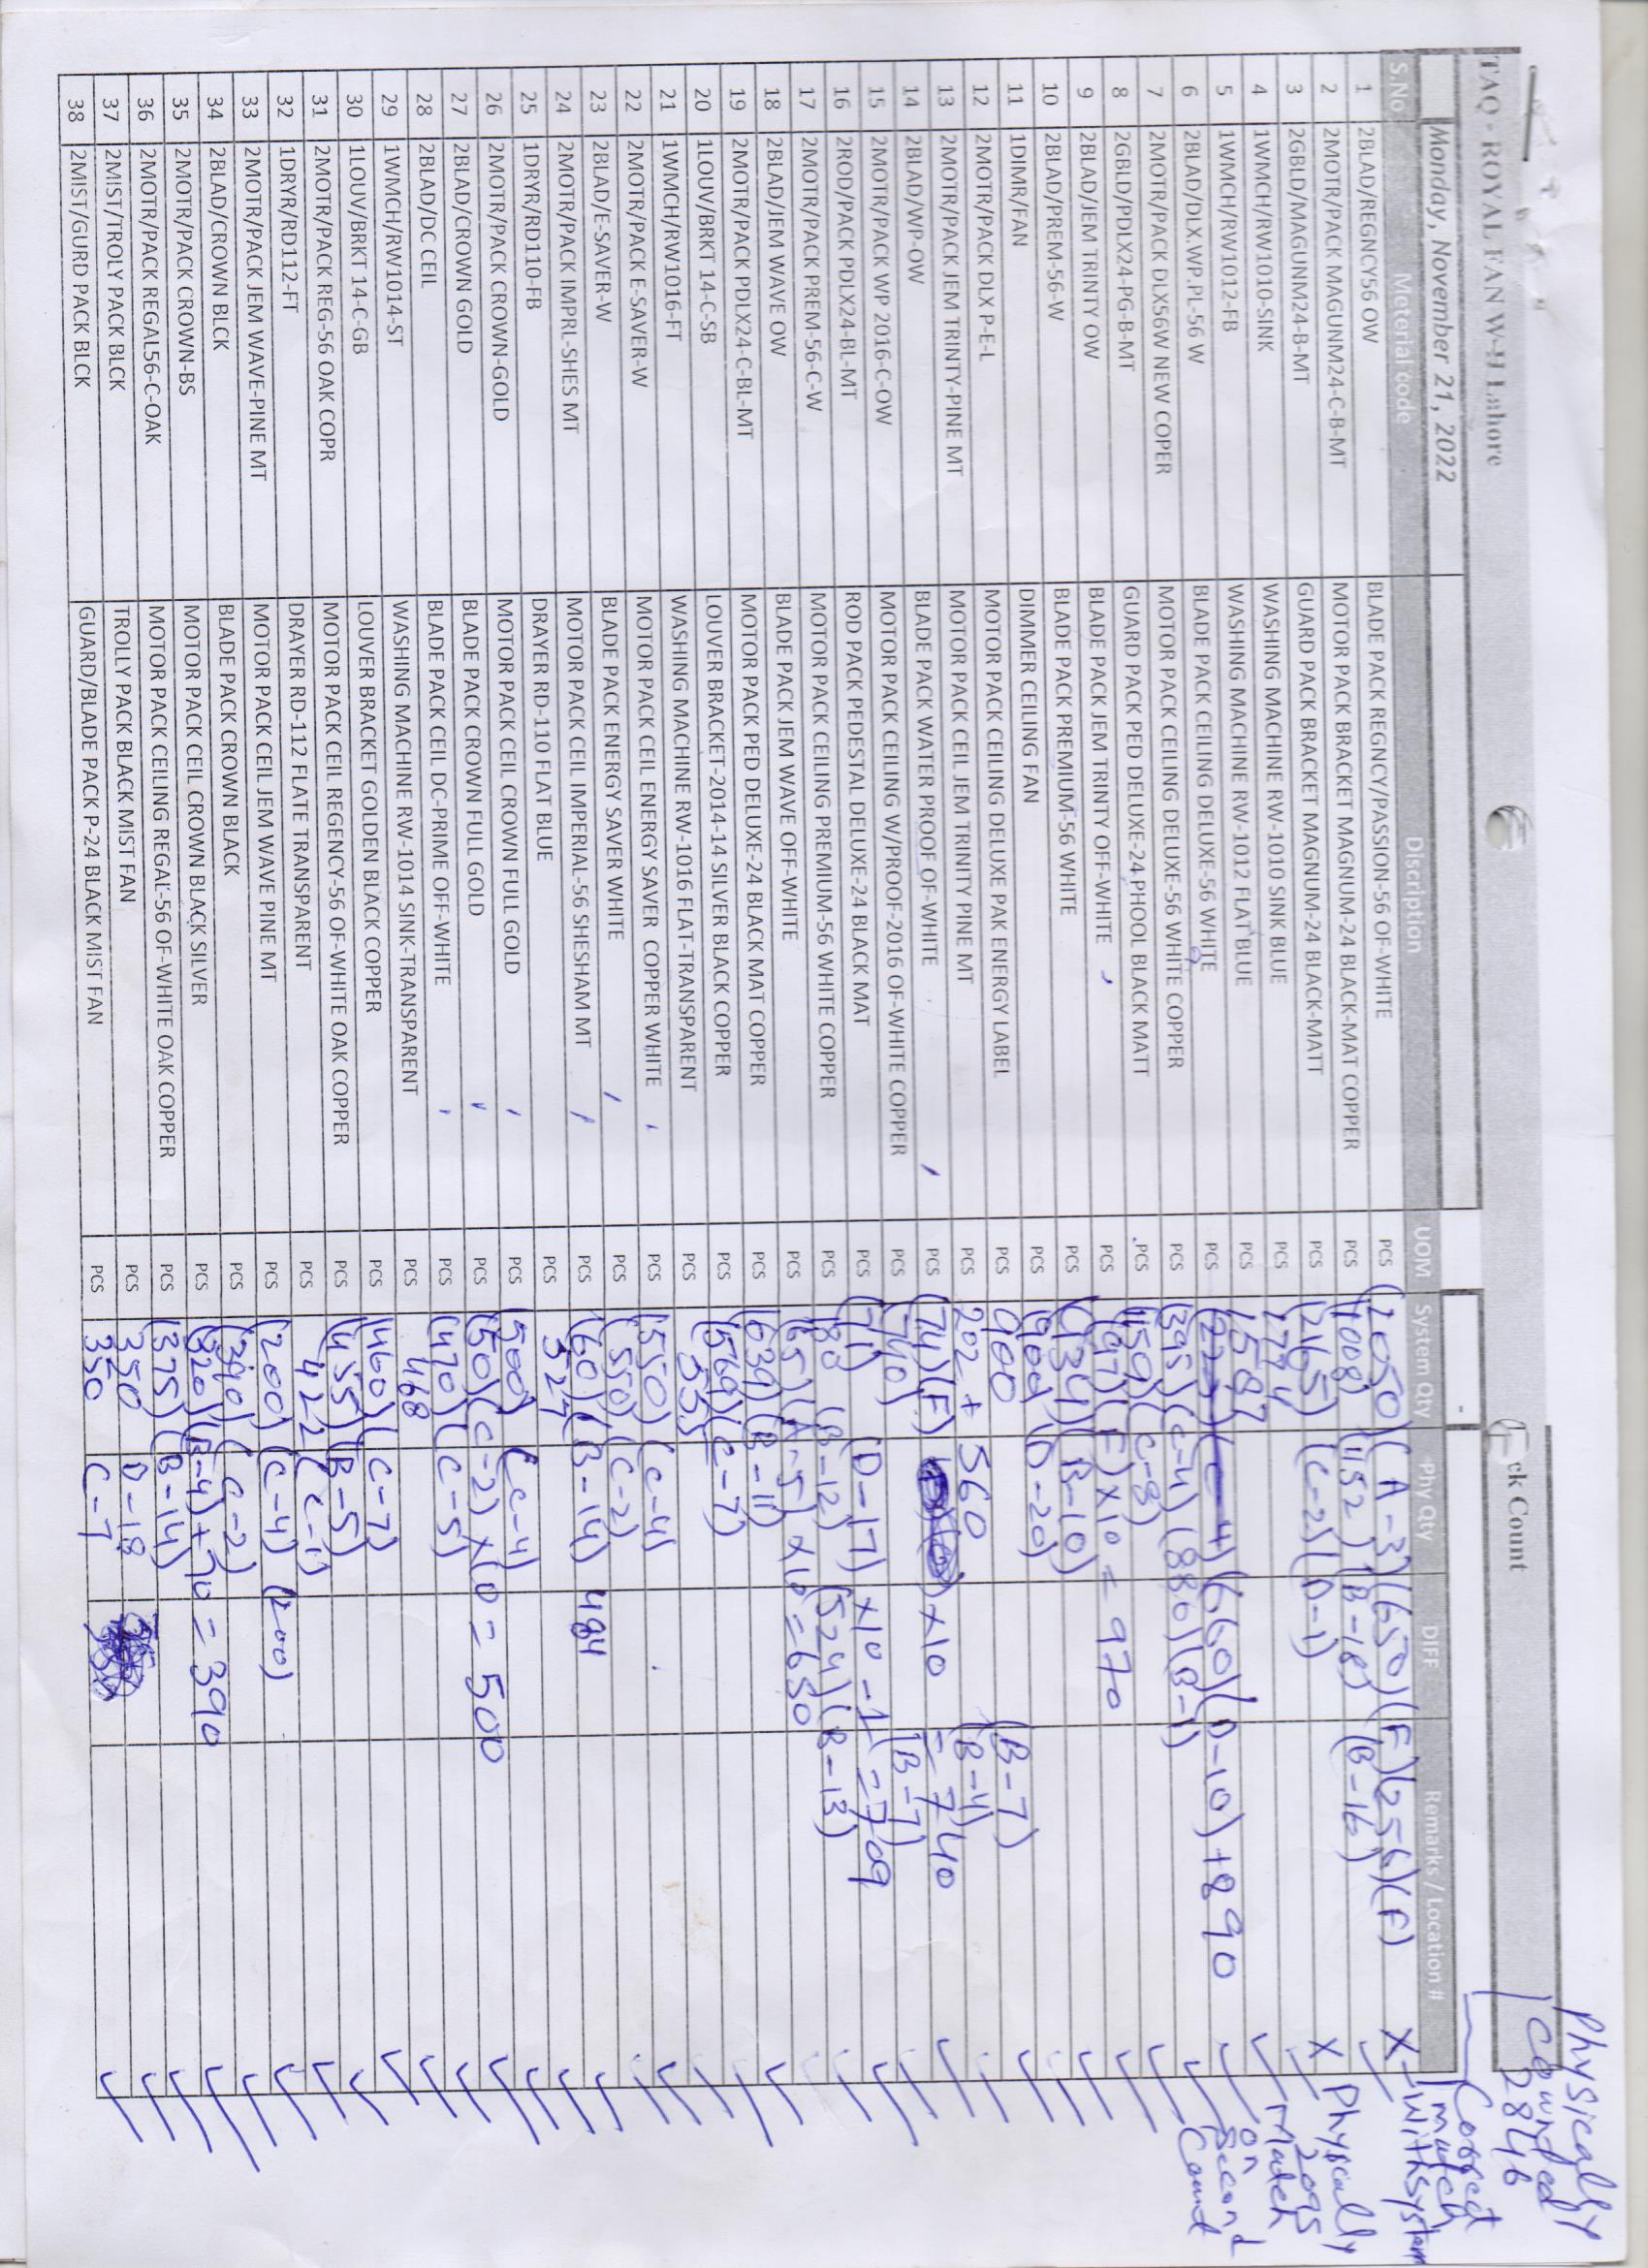 TAQ - ROYAL FAN W-H Lahore ck Count
Physically
Counted
2846
Monday, November 21, 2022
Correct
match
S.No Meterial code Discription UOM System Qty Phy Qty DIFF Remarks / Location #
1 2BLAD/REGNCY56 OW BLADE PACK REGNCY/PASSION-56 OF-WHITE PCS (2050) (A-3) (650) (F) (256) (F) X - with system
2 2MOTR/PACK MAGUNM24-C-B-MT MOTOR PACK BRACKET MAGNUM-24 BLACK-MAT COPPER PCS (1008) (1152) (B-18) (B-16)
3 2GBLD/MAGUNM24-B-MT GUARD PACK BRACKET MAGNUM-24 BLACK-MATT PCS (2165) (C-2) (D-1) X Physically
2095
4 1WMCH/RW1010-SINK WASHING MACHINE RW-1010 SINK BLUE PCS 2774 Match
5 1WMCH/RW1012-FB WASHING MACHINE RW-1012 FLAT BLUE PCS 1587 on
Second
Count
6 2BLAD/DLX.WP.PL-56 W BLADE PACK CEILING DELUXE-56 WHITE PCS (660) (D-10) +890
7 2MOTR/PACK DLX56W NEW COPER MOTOR PACK CEILING DELUXE-56 WHITE COPPER PCS (395) (C-4) (880) (B-1)
8 2GBLD/PDLX24-PG-B-MT GUARD PACK PED DELUXE-24 PHOOL BLACK MATT PCS (1159) (C-8)
9 2BLAD/JEM TRINTY OW BLADE PACK JEM TRINTY OFF-WHITE PCS (97) (F) x10 = 970
10 2BLAD/PREM-56-W BLADE PACK PREMIUM-56 WHITE PCS (934) (B-10)
11 1DIMR/FAN DIMMER CEILING FAN PCS (900) (D-20)
12 2MOTR/PACK DLX P-E-L MOTOR PACK CEILING DELUXE PAK ENERGY LABEL PCS 900 (B-7)
13 2MOTR/PACK JEM TRINTY-PINE MT MOTOR PACK CEIL JEM TRINITY PINE MT PCS 202 + 560 (B-4)
14 2BLAD/WP-OW BLADE PACK WATER PROOF OF-WHITE PCS (74) (F) x10 = 740
15 2MOTR/PACK WP 2016-C-OW MOTOR PACK CEILING W/PROOF-2016 OF-WHITE COPPER PCS (740) (B-7)
16 2ROD/PACK PDLX24-BL-MT ROD PACK PEDESTAL DELUXE-24 BLACK MAT PCS (71) (D-17) x10 -1 = 709
17 2MOTR/PACK PREM-56-C-W MOTOR PACK CEILING PREMIUM-56 WHITE COPPER PCS 180 (B-12) (524) (B-13)
18 2BLAD/JEM WAVE OW BLADE PACK JEM WAVE OFF-WHITE PCS (65) (A-5) x10 = 650
19 2MOTR/PACK PDLX24-C-BL-MT MOTOR PACK PED DELUXE-24 BLACK MAT COPPER PCS (639) (B-11)
20 1LOUV/BRKT 14-C-SB LOUVER BRACKET-2014-14 SILVER BLACK COPPER PCS (569) (C-7)
21 1WMCH/RW1016-FT WASHING MACHINE RW-1016 FLAT-TRANSPARENT PCS 553
22 2MOTR/PACK E-SAVER-W MOTOR PACK CEIL ENERGY SAVER COPPER WHITE PCS (550) (C-4)
23 2BLAD/E-SAVER-W BLADE PACK ENERGY SAVER WHITE PCS (550) (C-2)
24 2MOTR/PACK IMPRL-SHES MT MOTOR PACK CEIL IMPERIAL-56 SHESHAM MT PCS (60) (B-14) 484
25 1DRYR/RD110-FB DRAYER RD-110 FLAT BLUE PCS 527
26 2MOTR/PACK CROWN-GOLD MOTOR PACK CEIL CROWN FULL GOLD PCS (500) (C-4)
27 2BLAD/CROWN GOLD BLADE PACK CROWN FULL GOLD PCS (50) (C-2) x10 = 500
28 2BLAD/DC CEIL BLADE PACK CEIL DC-PRIME OFF-WHITE PCS (470) (C-5)
29 1WMCH/RW1014-ST WASHING MACHINE RW-1014 SINK-TRANSPARENT PCS 468
30 1LOUV/BRKT 14-C-GB LOUVER BRACKET GOLDEN BLACK COPPER PCS (460) (C-7)
31 2MOTR/PACK REG-56 OAK COPR MOTOR PACK CEIL REGENCY-56 OF-WHITE OAK COPPER PCS (455) (B-5)
32 1DRYR/RD112-FT DRAYER RD-112 FLATE TRANSPARENT PCS 422 (C-1)
33 2MOTR/PACK JEM WAVE-PINE MT MOTOR PACK CEIL JEM WAVE PINE MT PCS (200) (C-4) (200)
34 2BLAD/CROWN BLCK BLADE PACK CROWN BLACK PCS (390) (C-2)
35 2MOTR/PACK CROWN-BS MOTOR PACK CEIL CROWN BLACK SILVER PCS (320) (B-4) +70 = 390
36 2MOTR/PACK REGAL56-C-OAK MOTOR PACK CEILING REGAL-56 OF-WHITE OAK COPPER PCS (375) (B-14)
37 2MIST/TROLY PACK BLCK TROLLY PACK BLACK MIST FAN PCS 350 D-18
38 2MIST/GURD PACK BLCK GUARD/BLADE PACK P-24 BLACK MIST FAN PCS 350 C-7